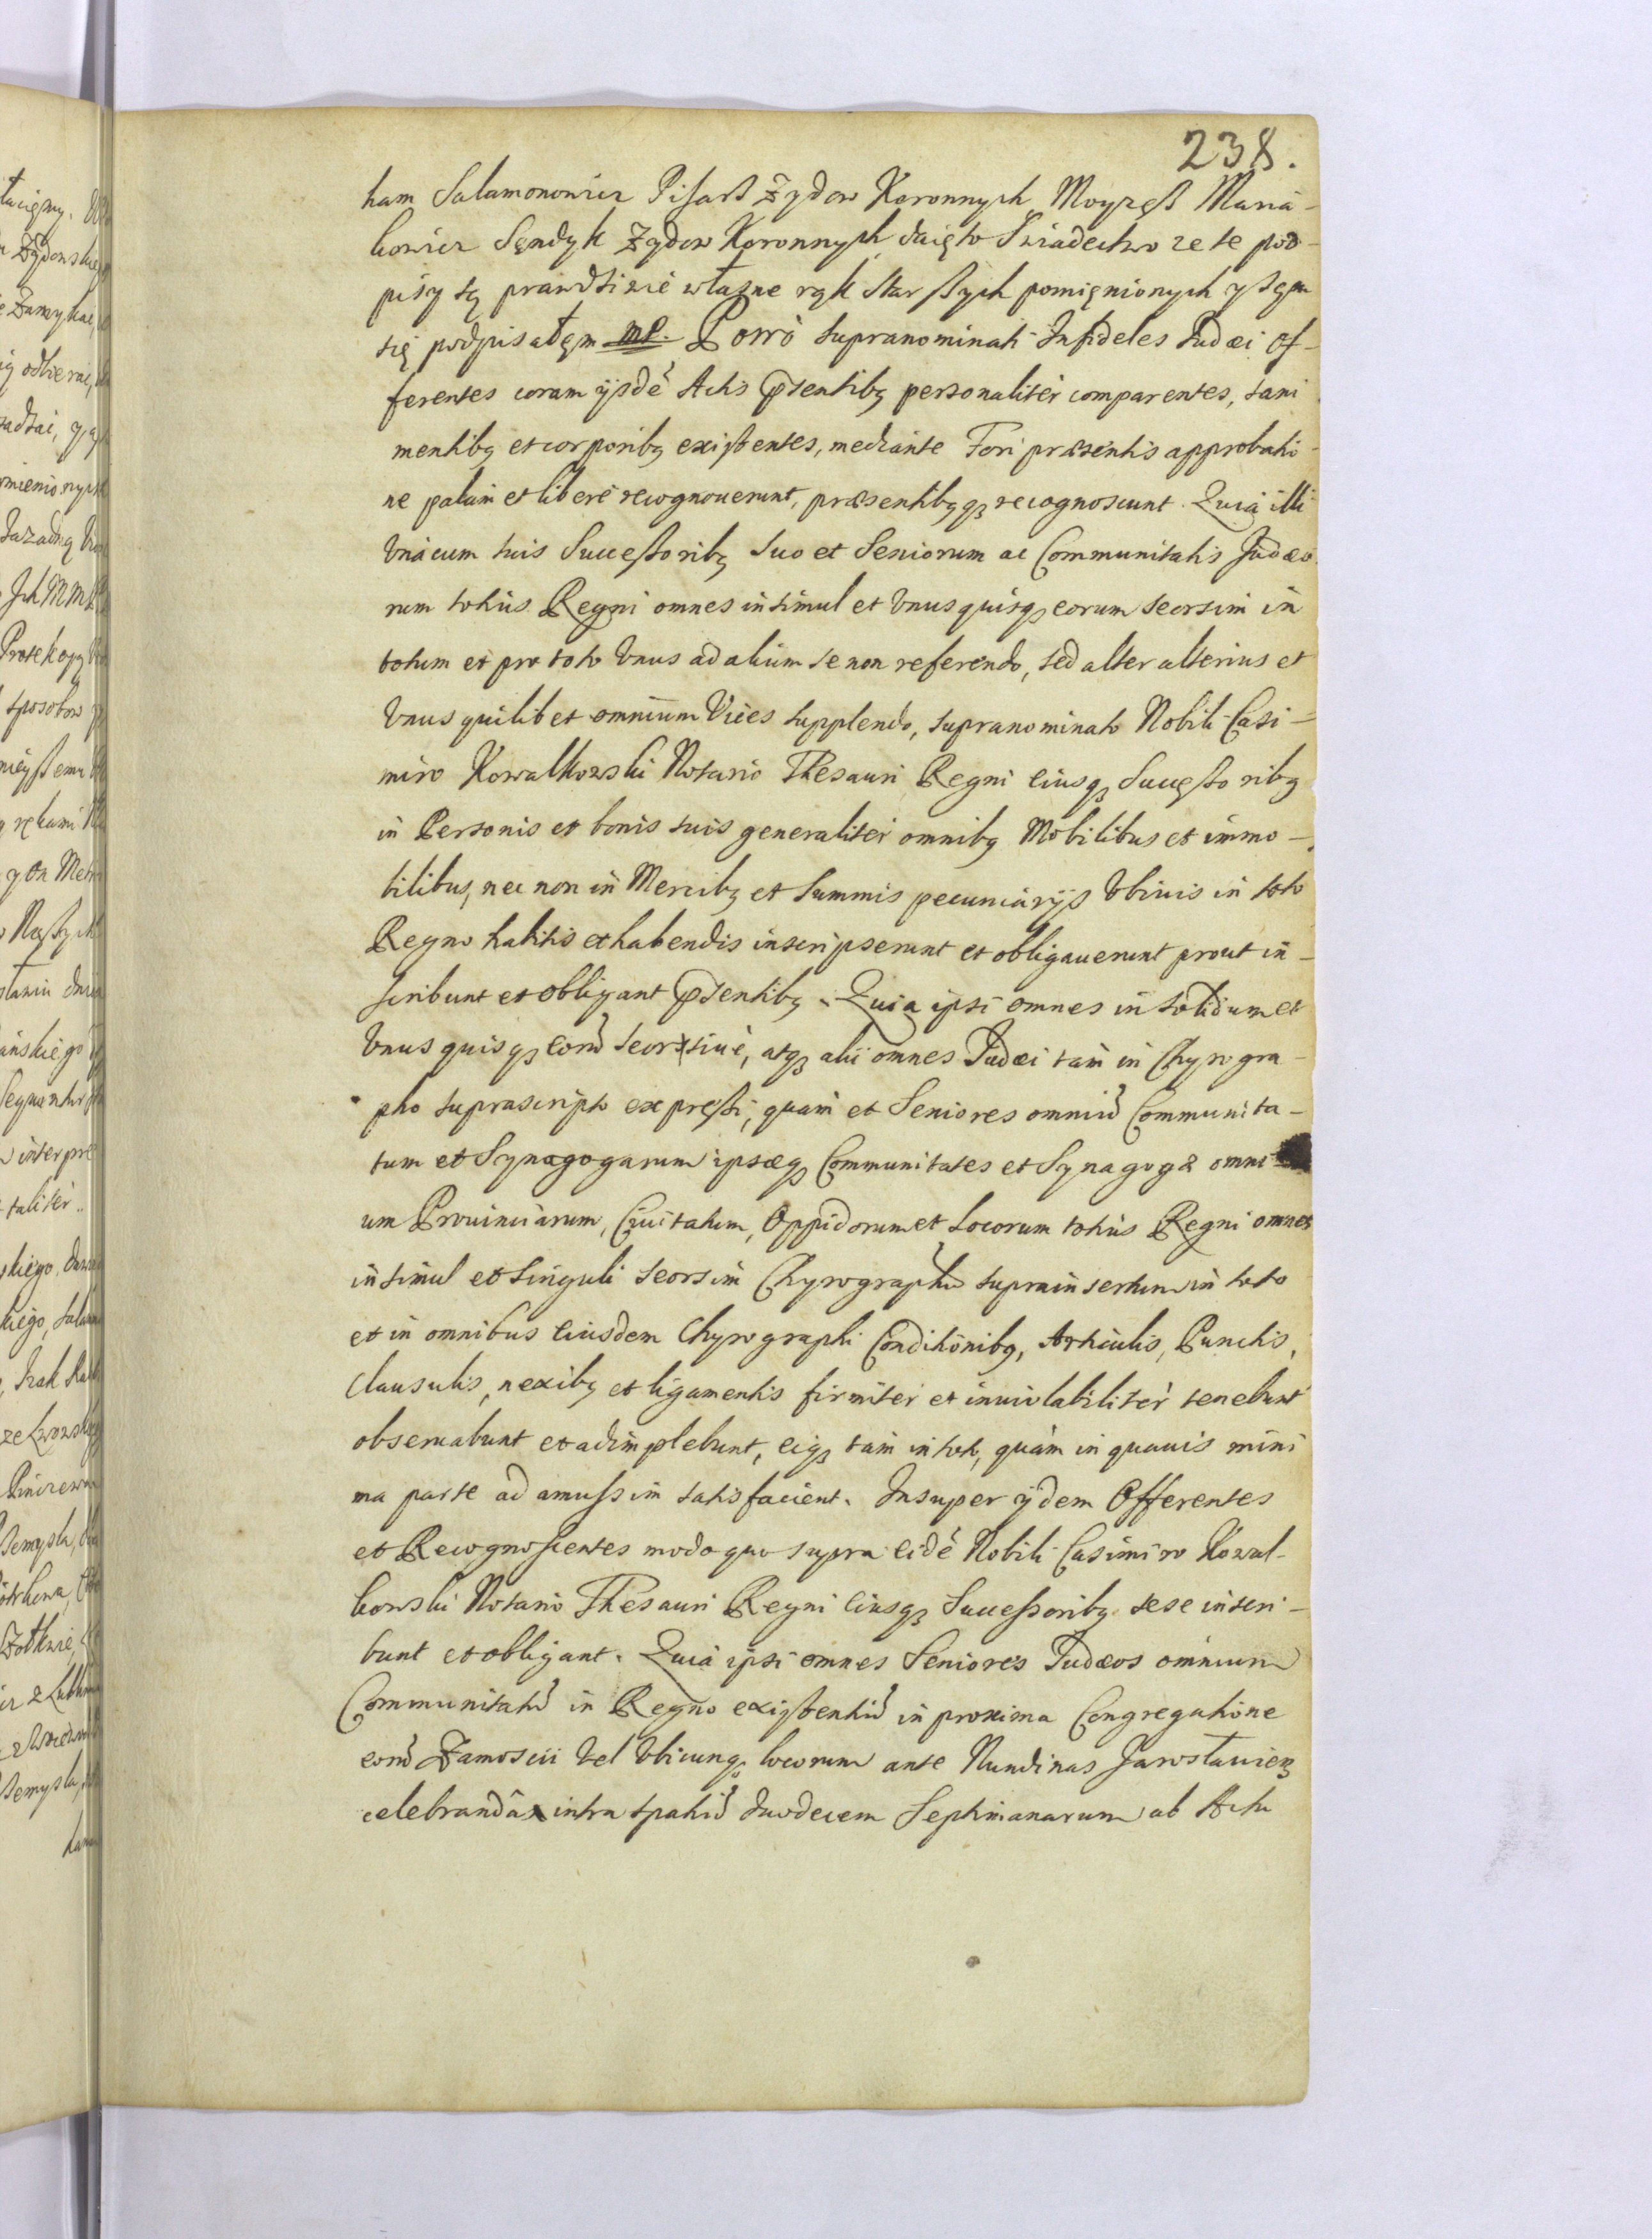 238.
ham Salamonowicz Pisarß Zydow Koronnych Moyzęß Mara-
kowicz Sęndyk Zydow Koronnych daię to Swiadectwo ze te pod-
pisy są prawdziwie własne rąk starßych pomięnionych y sąm
się podpisałęm mp. Porrò supranominati Infideles Judæi of-
ferentes coram ijsdē Actis p̄sentibꝫ personalitèr comparentes, sani
mentibꝫ et corporibꝫ existentes, mediante Fori præsentis approbatio-
ne palàm et liberè recognouerunt, præsentibꝫqꝫ recognoscunt. Quià illi
Vnàcum suis Successoribꝫ suo et Seniorum ac Communitatis Judæo
rum totius Regni omnes insimul et Vnusquisqꝫ eorum seorsim in
totum et pro toto Vnus ad alium se non referendo, sed alter alterius et
Vnusquilibet omnium Vices supplendo, supranominato Nobili Casi-
miro Kowalkowski Notario Thesauri Regni eiusqꝫ Successoribꝫ
in Personis et bonis suis generalitèr omnibꝫ Mobilibus et immo-
bilibus, nec non in Mercibꝫ et summis pecuniarijs Vbiuis in toto
Regno habitis et habendis inscripserunt et obligauerunt prout in-
scribunt et obligant p̄sentibꝫ. Quia ipsi omnes in solidum et
Vnusquisqꝫ eorū seorsiuè, atqꝫ alii omnes Judæi tam in Chyrogra-
pho suprascripto expressi, quàm et Seniores omniū Communita-
tum et Synagogarum ipsæqꝫ Communitates et Synagogæ omni-
um Prouinciarum, Ciuitatum, Oppidorum et Locorum totius Regni omnes
insimul et singuli seorsim Chyrographū suprainsertum in toto
et in omnibus eiusdem Chyrographi Conditionibꝫ, Articulis, Punctis,
Clausulis, nexibꝫ et ligamentis firmitèr et inuiolabilitèr tenebunt
obseruabunt et adimplebunt, eiqꝫ tàm in toto, quàm in quauis mini
ma parte ad amussim satisfacient. Insuper ijdem Offerentes
et Recognoscentes modo quo supra eidē Nobili Casimiro Kowal-
kowski Notario Thesauri Regni eiusqꝫ Successoribꝫ sese inscri-
bunt et obligant. Quià ipsi omnes Seniores Judæos omnium
Communitatū in Regno existentiū in proxima Congregatione
eorū Zamoscii Vel Vbicunqꝫ locorum ante Nundinas Jarosłauienꝫ
celebranda intra spatiū duodecem Septimanarum ab Actu